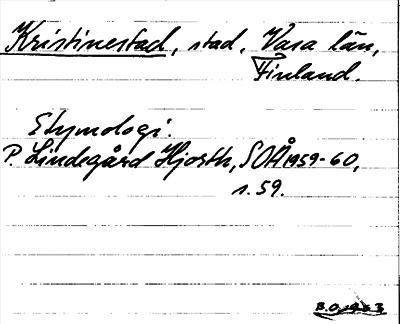 Kristinestad, stad, Vasa län,
Finland.
Etymologi:
P. Lindegård Hjorth, SOÅ 1959-60,
s. 59.